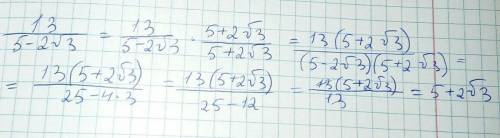 13/(5-2√3) = 13/(5-2√3) · (5+2√3)/(5+2√3) = 13(5+2√3)/((5-2√3)(5+2√3)) =
= 13(5+2√3)/(25-4·3) = 13(5+2√3)/(25-12) = 13(5+2√3)/13 = 5+2√3